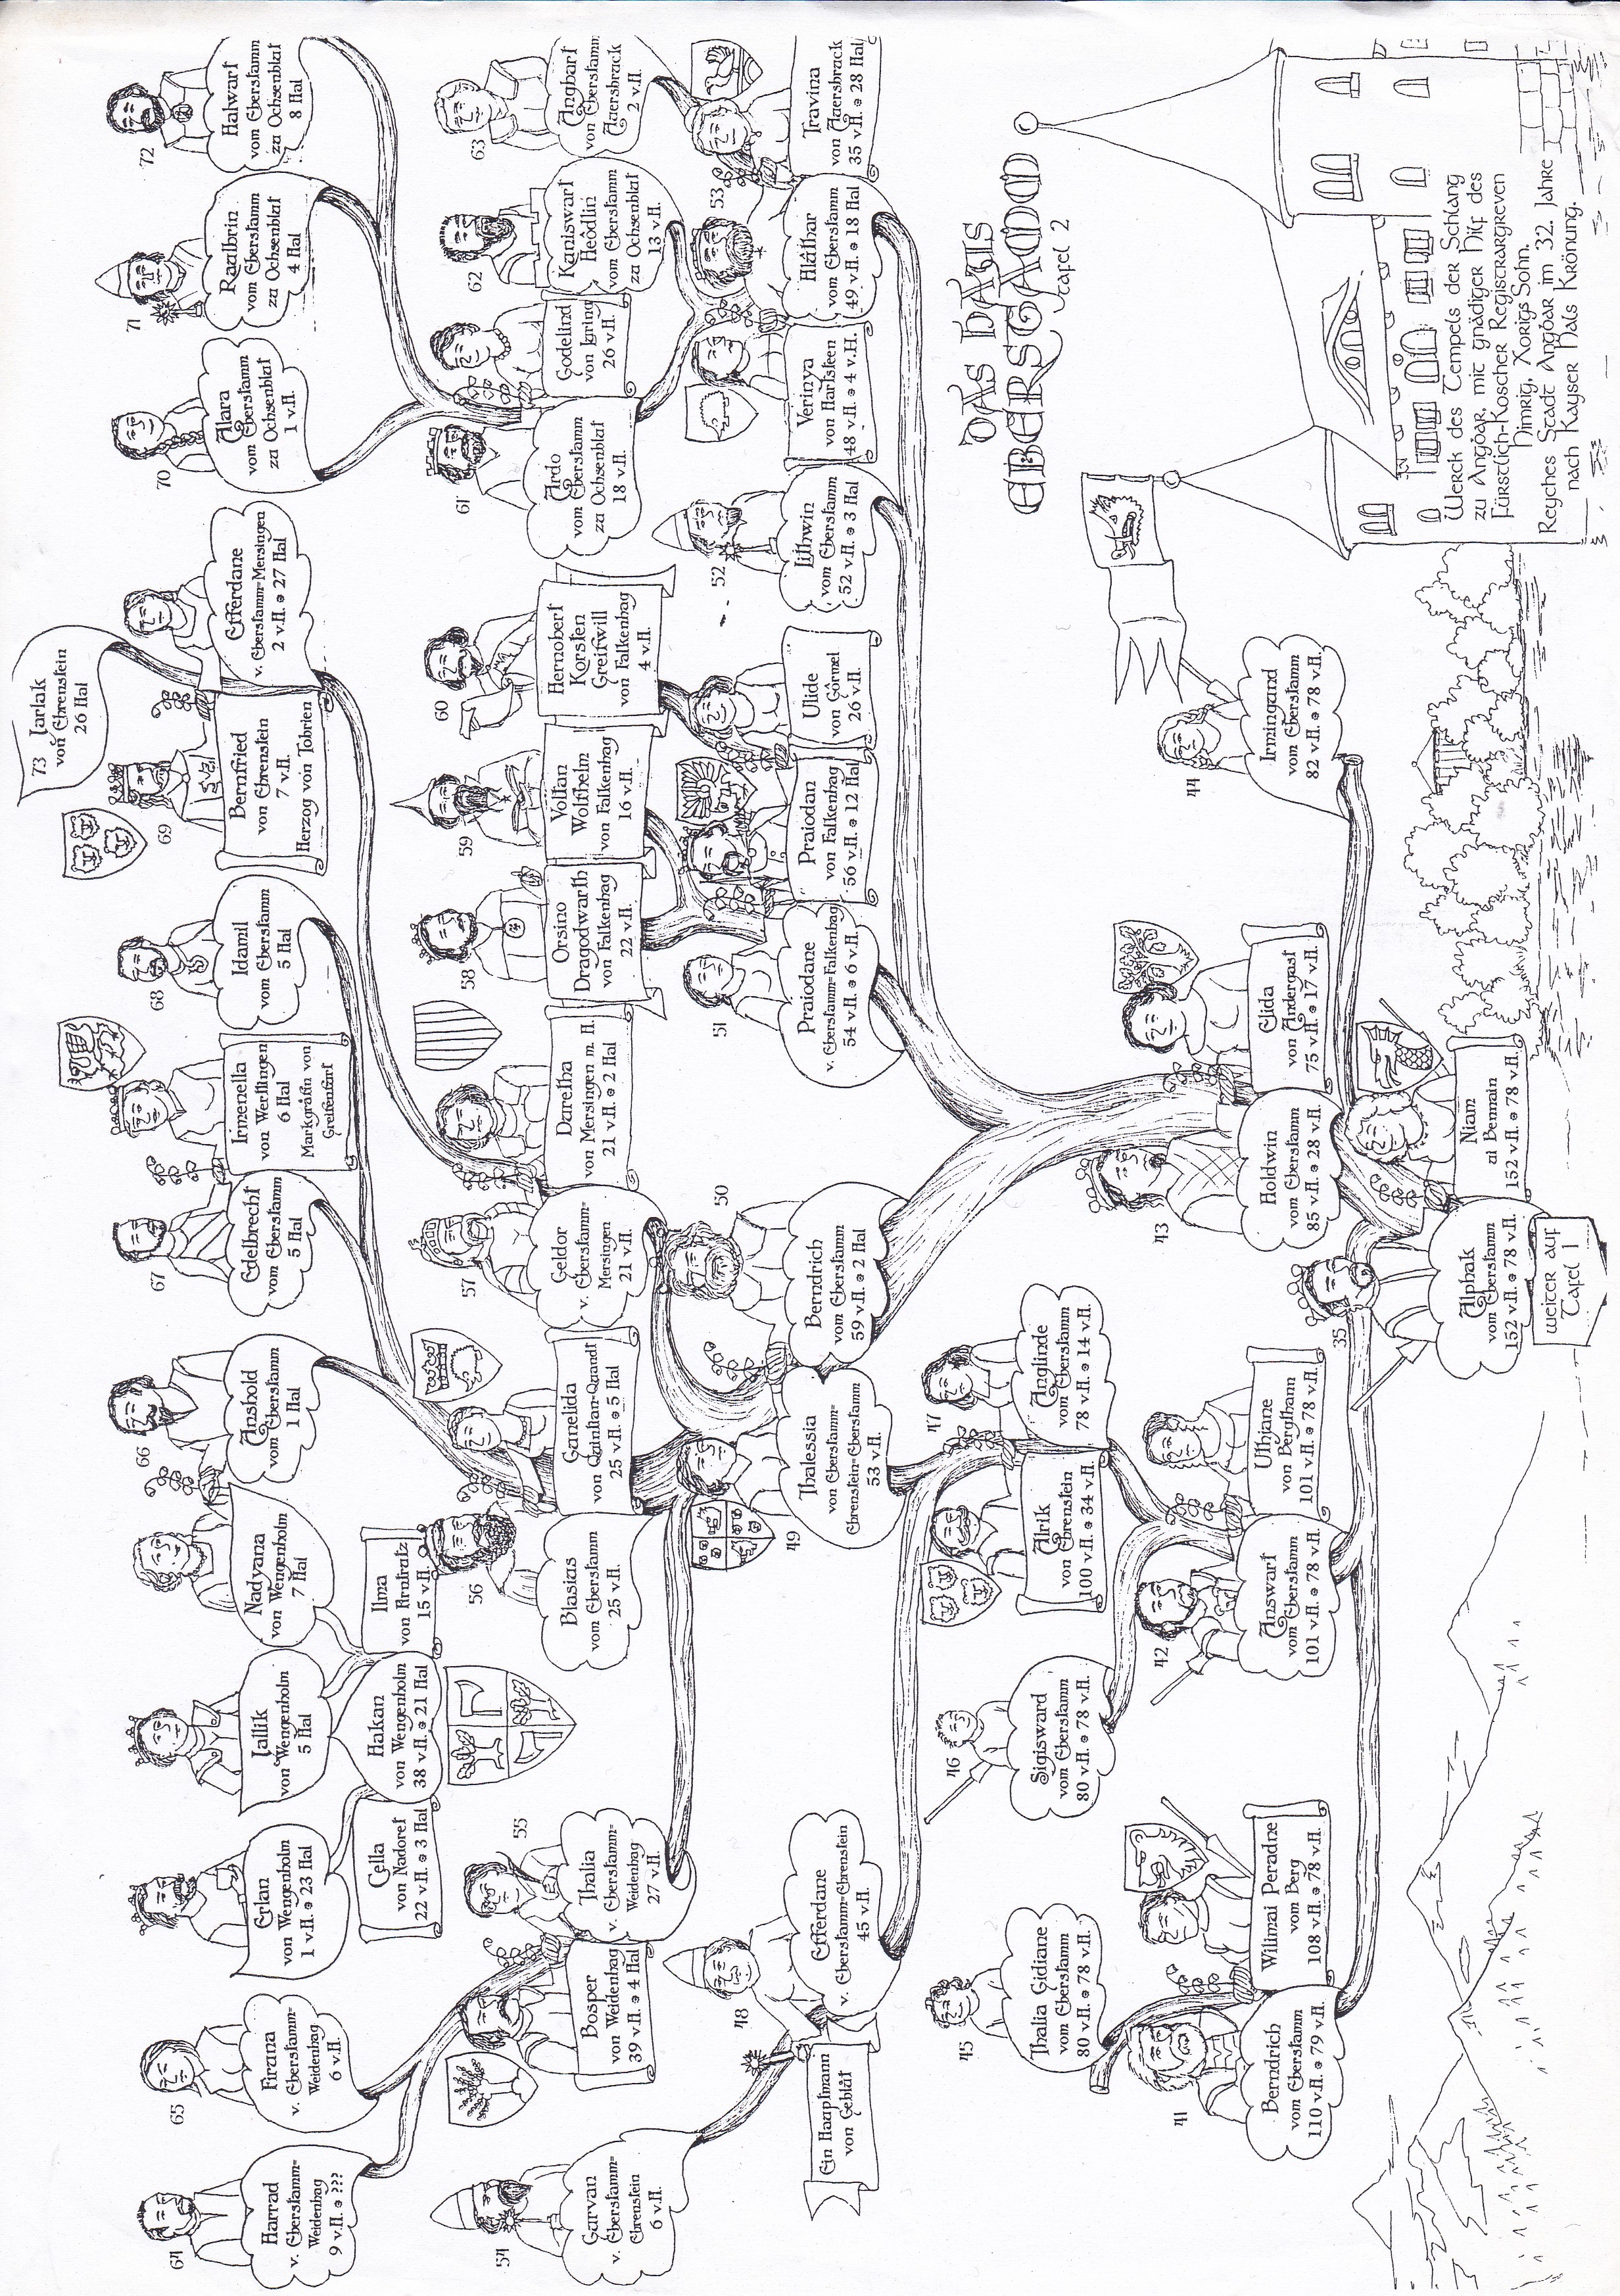 DAS HAUS
EBERSTAMM
Tafel 2
73 Jarlak
von Ehrenstein
26 Hal
64
Harrad
v. Eberstamm=
Weidenhag
9 v.H. ⊕ ???
65
Firuna
v. Eberstamm=
Weidenhag
6 v.H.
Erlan
von Wengenholm
1 v.H. ⊕ 23 Hal
Jallik
von Wengenholm
5 Hal
Nadyana
von Wengenholm
7 Hal
66
Anshold
vom Eberstamm
1 Hal
67
Edelbrecht
vom Eberstamm
5 Hal
Irmenella
von Wertlingen
6 Hal
Markgräfin von
Greifenfurt
68
Idamil
vom Eberstamm
5 Hal
69
Bernfried
von Ehrenstein
7 v.H.
Herzog von Tobrien
Efferdane
v. Eberstamm=Mersingen
2 v.H. ⊕ 27 Hal
70
Allara
vom Eberstamm
zu Ochsenblut
1 v.H.
71
Razlbrin
vom Eberstamm
zu Ochsenblut
4 Hal
72
Halwart
vom Eberstamm
zu Ochsenblut
8 Hal
Cella
von Nadoret
22 v.H. ⊕ 3 Hal
Hakan
von Wengenholm
38 v.H. ⊕ 21 Hal
Ilma
von Arnfratz
15 v.H.
54
Garvan
v. Eberstamm=
Ehrenstein
6 v.H.
Bosper
von Weidenhag
39 v.H. ⊕ 4 Hal
55
Thalia
v. Eberstamm=
Weidenhag
27 v.H.
56
Blasius
vom Eberstamm
25 v.H.
Ganelida
von Quintian=Quandt
25 v.H. ⊕ 5 Hal
57
Geldor
v. Eberstamm=
Mersingen
21 v.H.
Daretha
von Mersingen m. H.
21 v.H. ⊕ 2 Hal
58
Orsino
Dragodwarth
von Falkenhag
22 v.H.
59
Volfan
Wolfhelm
von Falkenhag
16 v.H.
60
Hernobert
Korsten
Greifwill
von Falkenhag
4 v.H.
61
Ardo
vom Eberstamm
zu Ochsenblut
18 v.H.
Godelind
von Igring
26 v.H.
62
Kuniswart
Hedlin
vom Eberstamm
zu Ochsenblut
13 v.H.
63
Angbart
von Eberstamm
Auersbruck
2 v.H.
Ein Hauptmann
von Geblät
48
Efferdane
v. Eberstamm=Ehrenstein
45 v.H.
49
Thalessia
von Eberstamm=
Ehrenstein=Eberstamm
53 v.H.
50
Berndrich
vom Eberstamm
59 v.H. ⊕ 2 Hal
51
Praiodane
v. Eberstamm=Falkenhag
54 v.H. ⊕ 6 v.H.
Praiodan
von Falkenhag
56 v.H. ⊕ 12 Hal
Ulide
von Görmel
26 v.H.
52
Lithwin
vom Eberstamm
52 v.H. ⊕ 3 Hal
Verinya
von Hartsteen
48 v.H. ⊕ 4 v.H.
53
Hláthar
vom Eberstamm
49 v.H. ⊕ 18 Hal
Travina
von Auersbruck
35 v.H. ⊕ 28 Hal
45
Thalia Gidiane
vom Eberstamm
80 v.H. ⊕ 78 v.H.
46
Sigisward
vom Eberstamm
80 v.H. ⊕ 78 v.H.
Alrik
von Ehrenstein
100 v.H. ⊕ 34 v.H.
47
Anglinde
vom Eberstamm
78 v.H. ⊕ 14 v.H.
41
Berndrich
vom Eberstamm
110 v.H. ⊕ 79 v.H.
Wilimai Peradne
vom Berg
108 v.H. ⊕ 78 v.H.
42
Answart
vom Eberstamm
101 v.H. ⊕ 78 v.H.
Ulfhjane
von Bergthann
101 v.H. ⊕ 78 v.H.
43
Holdwin
vom Eberstamm
85 v.H. ⊕ 28 v.H.
Elida
von Andergast
75 v.H. ⊕ 17 v.H.
44
Irmingund
vom Eberstamm
82 v.H. ⊕ 78 v.H.
35
Alphak
vom Eberstamm
152 v.H. ⊕ 78 v.H.
Niam
ui Bennain
152 v.H. ⊕ 78 v.H.
weiter auf
Tafel 1
Werck des Tempels der Schlang
zu Angbar mit gnädiger Hilf des
Fürstlich-Koscher Registrargreven
Nimrig, Xorigs Sohn.
Reyches Stadt Angbar im 32. Jahre
nach Kayser Hals Krönung.